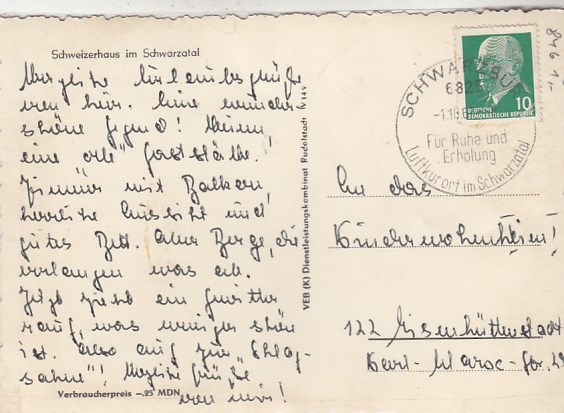 Schweizerhaus im Schwarzatal
Herzliche Urlaubsgrüße
von hier. Eine wunder-
schöne Gegend!
eine gaststätte!
Zimmer mit Balkon,
herrliche Aussicht und
gutes Bett. Aber Berge, die
verlangen was ab.
Jetzt zieht ein Gewitter
rauf, was weniger schön
ist. Also auf zur "Schlag-
sahne"! Herzliche Grüße
von mir!
Verbraucherpreis –,25 MDN
VEB (K) Dienstleistungskombinat Rudolstadt IV 14 V
SCHWARZBURG
682
-1.10.
Für Ruhe und
Erholung
Luftkurort im Schwarzatal
10
DEUTSCHE
DEMOKRATISCHE REPUBLIK
846
An das
Kinderwochenheim!
122 Eisenhüttenstadt
Karl-Marx-Str.